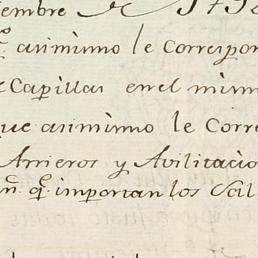 iembre de
q.º asimismo le Correspon
Capillas en el mism
que asimismo le Corre
Arrieros y Avilitacio
q.º importan los Val